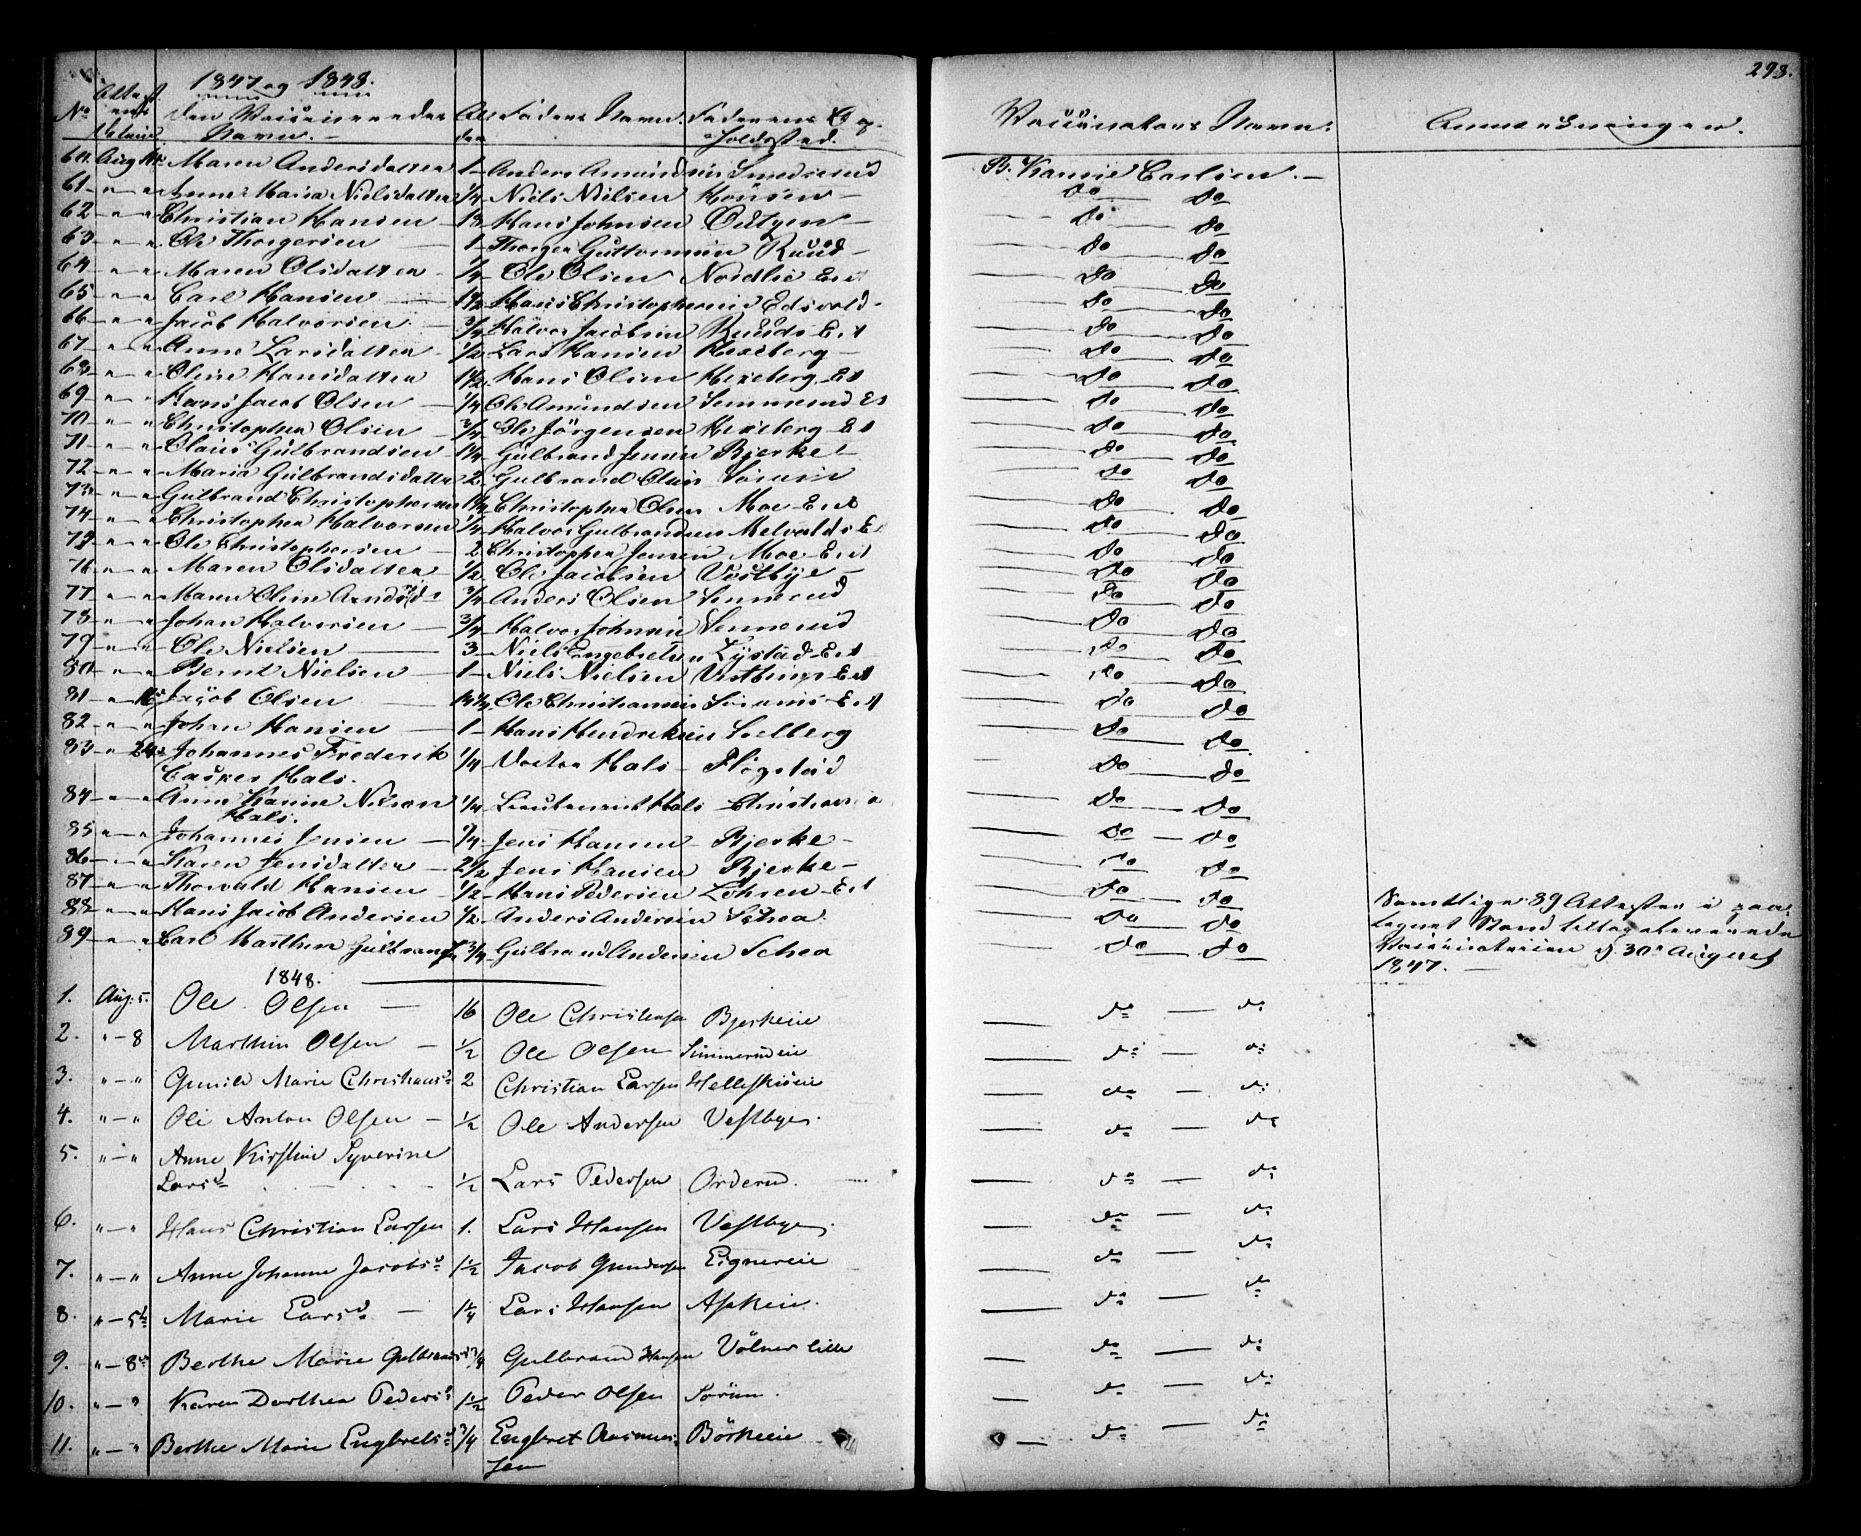 298.
1847 og 1848.
No Den Vaccineredes Navn. Faders Navn. Faderens Opholdssted. Vaccinateurs Navn. Anmærkninger.
60. Aug 14 Maren Andersdatter 1 Anders Smedsrud B. Karine Carlsen.
61 " " Anne Maria Nielsdatter 1/4 Niels Nielsen do do
62 " " Christian Hansen Hans Johnsen do do
63 " " Ole Thorgersen 1 Thorger Guttormsen Ruud do do
64 " " Maren Olsdatter 1/4 Ole Olsen Nordlie Eie do do
65 " " Carl Hansen 1 1/2 Hans Christophersen Eidsvold do do
66 " " Jacob Halvorsen 3/4 Halvor Jacobsen Ruuds Eie do do
67 " " Anne Larsdatter 1/2 Lars Hansen Hexeberg do do
68 " " Oline Hansdatter 1 1/2 Hans Olsen Hexeberg Eie do do
69 " " Hans Jacob Olsen 1/4 Ole Amundsen do do
70 " " Christopher Olsen 3/4 Ole Jörgensen Hexeberg Ei do do
71 " " Claus Gulbrandsen 1 1/4 Gulbrand Jensen Bjerke do do
72 " " Maria Gulbrandsdatter 2 Gulbrand Olsen Sörum do do
73 " " Gulbrand Christophersen Christopher Olsen Moe Eie do do
74 " " Christopher Halvorsen 1/4 Halvor Gulbrandsen Melvolds E do do
75 " " Ole Christophersen 2 Christopher Jensen Moe Eie do do
76 " " Maren Olsdatter 1/2 Ole Jacobsen Vestbye do do
77 " " Maren Oline Andersd 3/4 Anders Olsen do do
78 " " Johan Halvorsen 3/4 Halvor Johnsen do do
79 " " Ole Nielsen 3 Niels Engebretsen Lystad Eie do do
80 " " Bernt Nielsen 1 Niels Nielsen Vestbye Eie do do
81 " Jacob Olsen Ole Christiansen Sörums Eie do do
82 " " Johan Hansen 1 Hans Hendriksen Solberg do do
83 " 24 Johannes Frederik 1/4 Doctor Hals Flögstad do do
Casper Hals.
84 " " Anne Karine Nilson 1/4 Lieutenant Hals Christiania do do
Hals.
85 " " Johannes Jensen 1/4 Jens Hansen Bjerke do do
86 " " Karen Jensdatter 2 1/2 Jens Hansen Bjerke do do
87 " " Thorvald Hansen 1/2 Hans Pedersen Löhren Eie do do
88 " " Hans Jacob Andersen 1/2 Anders Andersen Schea do do
89 " " Carl Marthin Gulbrands 3/4 Gulbrand Andersen Schea do do
Samtlige 89 Attester i paa-
tegnet Stand tilbageleverede
Vaccinatricen d. 30te August
1847.
1848.
1. Aug. 5. Ole Olsen 16 Ole Christensen Bjerkeeie do do
2. " 8 Marthin Olsen 1/2 Ole Olsen Simmerudeie do do
3. " " Gunild Marie Christiansd 2 Christian Larsen do do
4. " " Ole Anton Olsen 1/2 Ole Andersen Vestbye. do do
5. " " Anne Kirstine Syverine
Larsd 1/2 Lars Pedersen Orderud. do do
6. " " Hans Christian Larsen 1. Lars Hansen Vestbye. do do
7. " " Anne Johanne Jacobsd 1 1/2 Jacob Gundersen Eignereie do do
8. " 5 Marie Larsd 1 1/4 Lars Hansen Askeie. do do
9. " 8 Berthe Marie Gulbrandsd Gulbrand Hansen Völner lille do do
10. " " Karen Dorthea Pedersd 1 1/2 Peder Olsen Sörum. do do
11. " " Berthe Marie Engebretsd 3/4 Engbret Rasmus- Börkeeie do do
sen